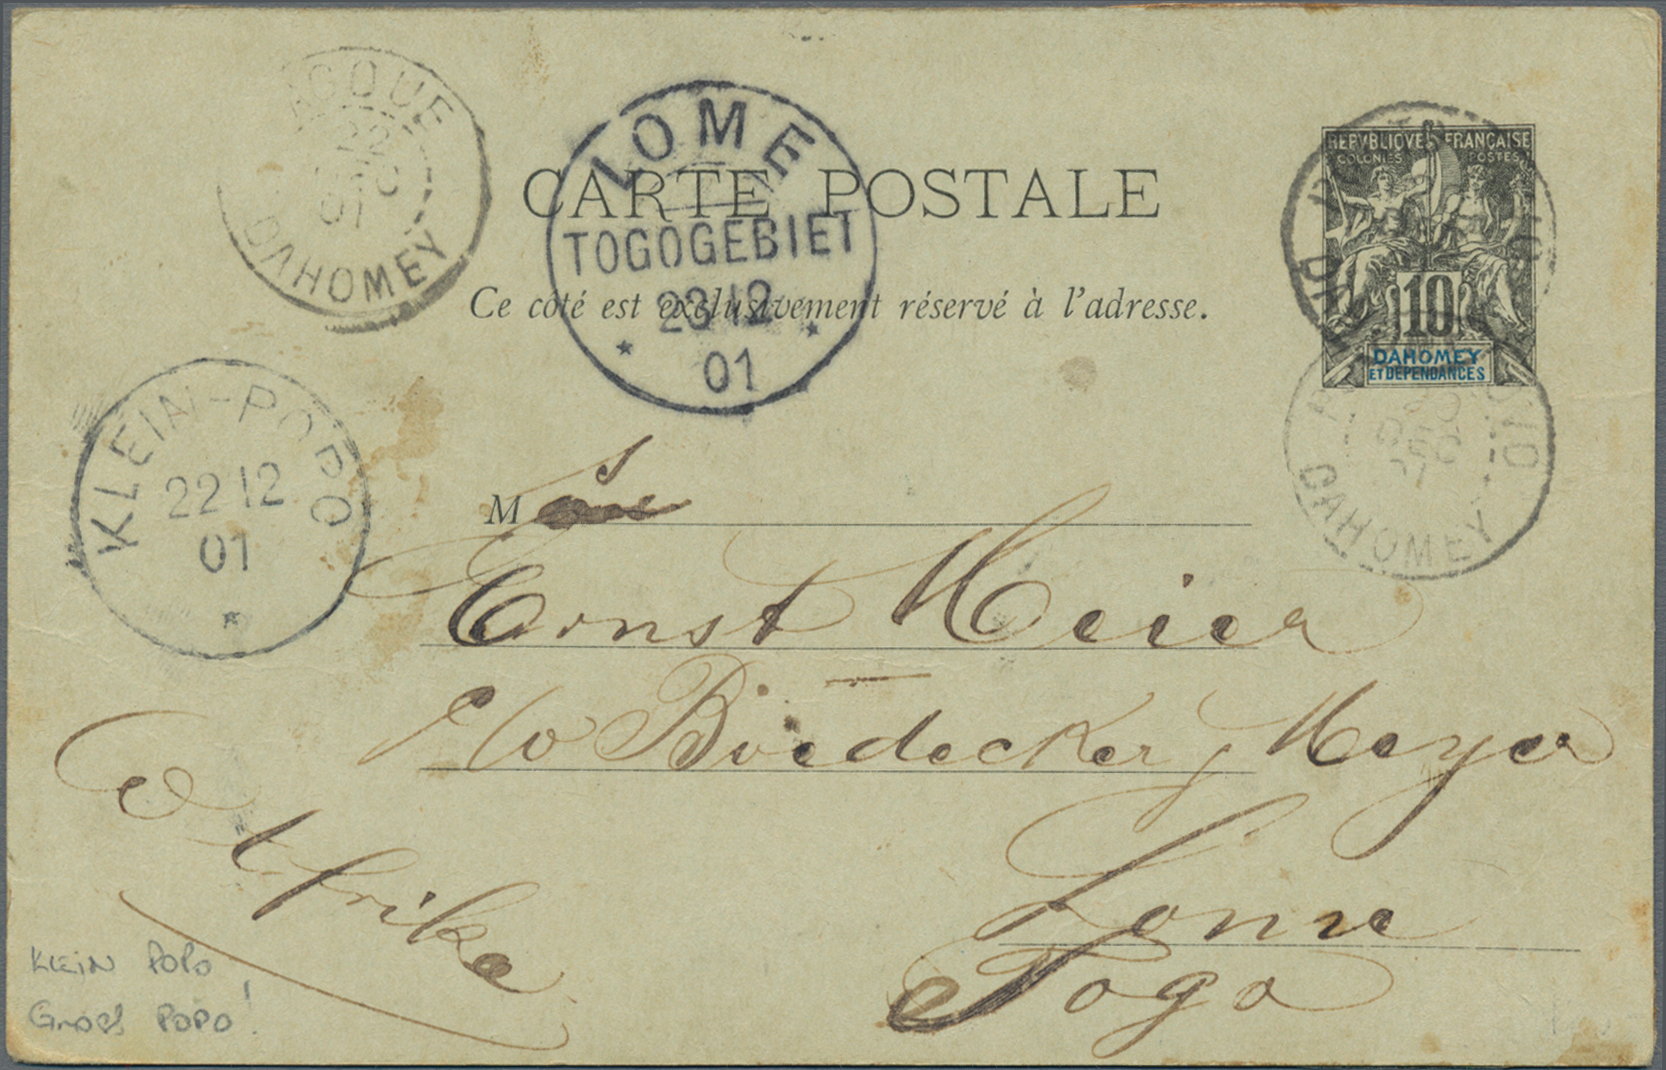 AGOUE
22
DEC
01
DAHOMEY
LOME
TOGOGEBIET
23 12
01
CARTE POSTALE
Ce côté est exclusivement réservé à l'adresse.
REPVBLIQVE FRANÇAISE
COLONIES POSTES
10
DAHOMEY
ET DÉPENDANCES
20
DEC
01
DAHOMEY
KLEIN-POPO
22 12
01
M
Ernst Meier
c/o Boedecker, Meyer
Lome
Togo
Afrika
KLEIN POPO
Gross POPO!